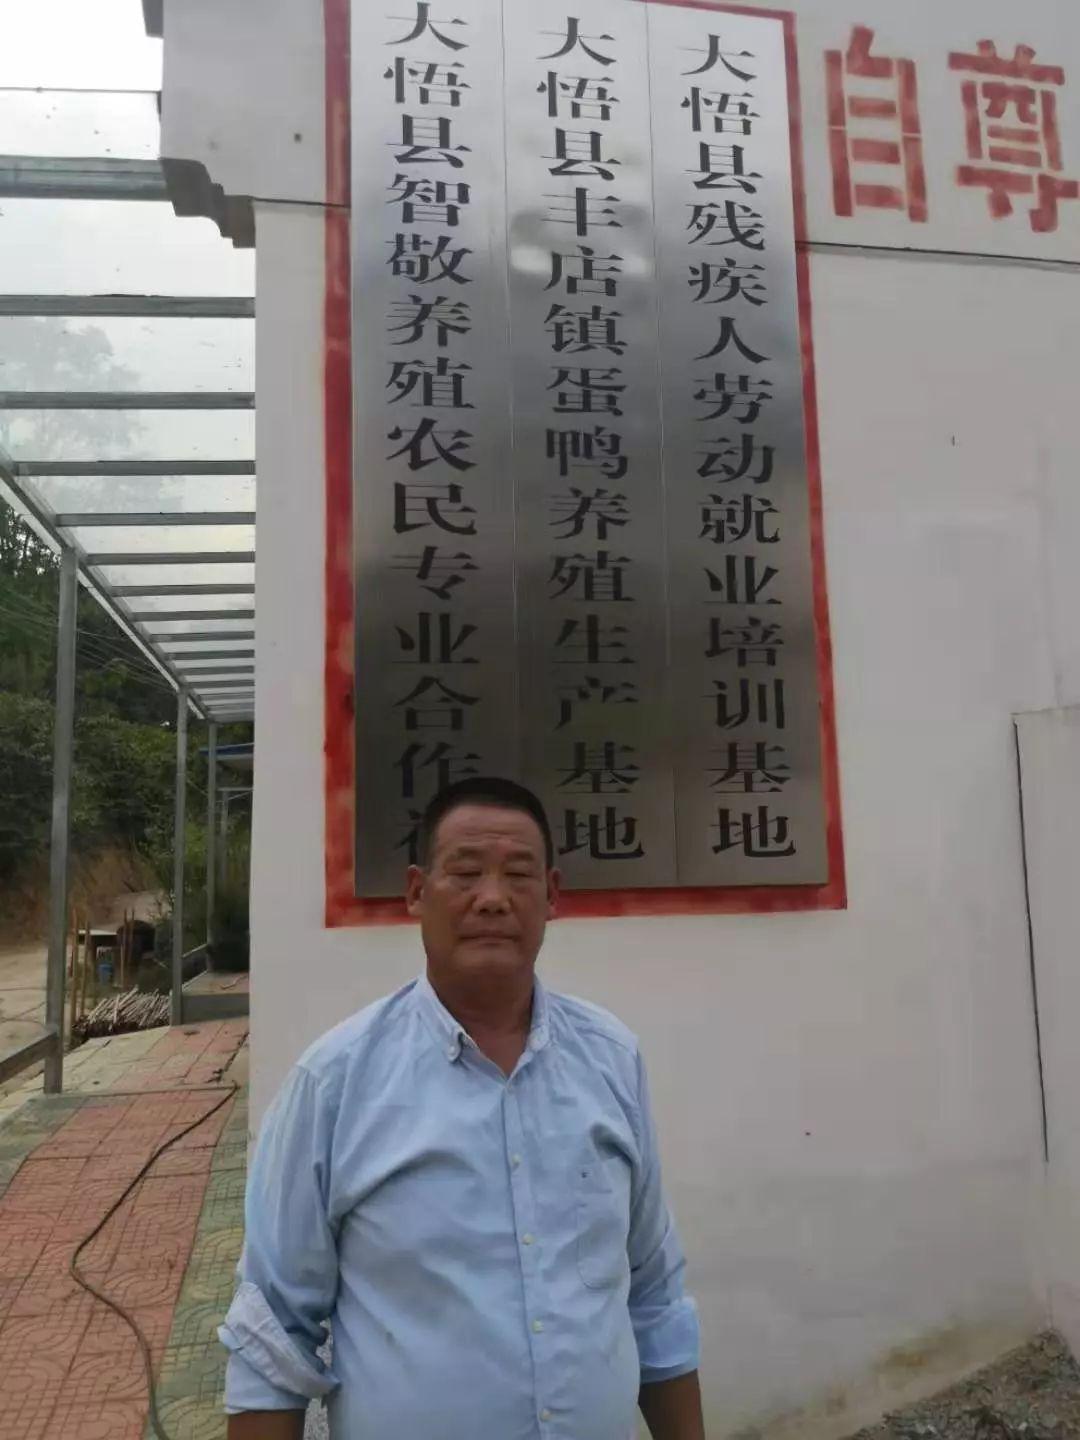 大悟县智敬养殖农民专业合作社
大悟县丰店镇蛋鸭养殖生产基地
大悟县残疾人劳动就业培训基地
自尊